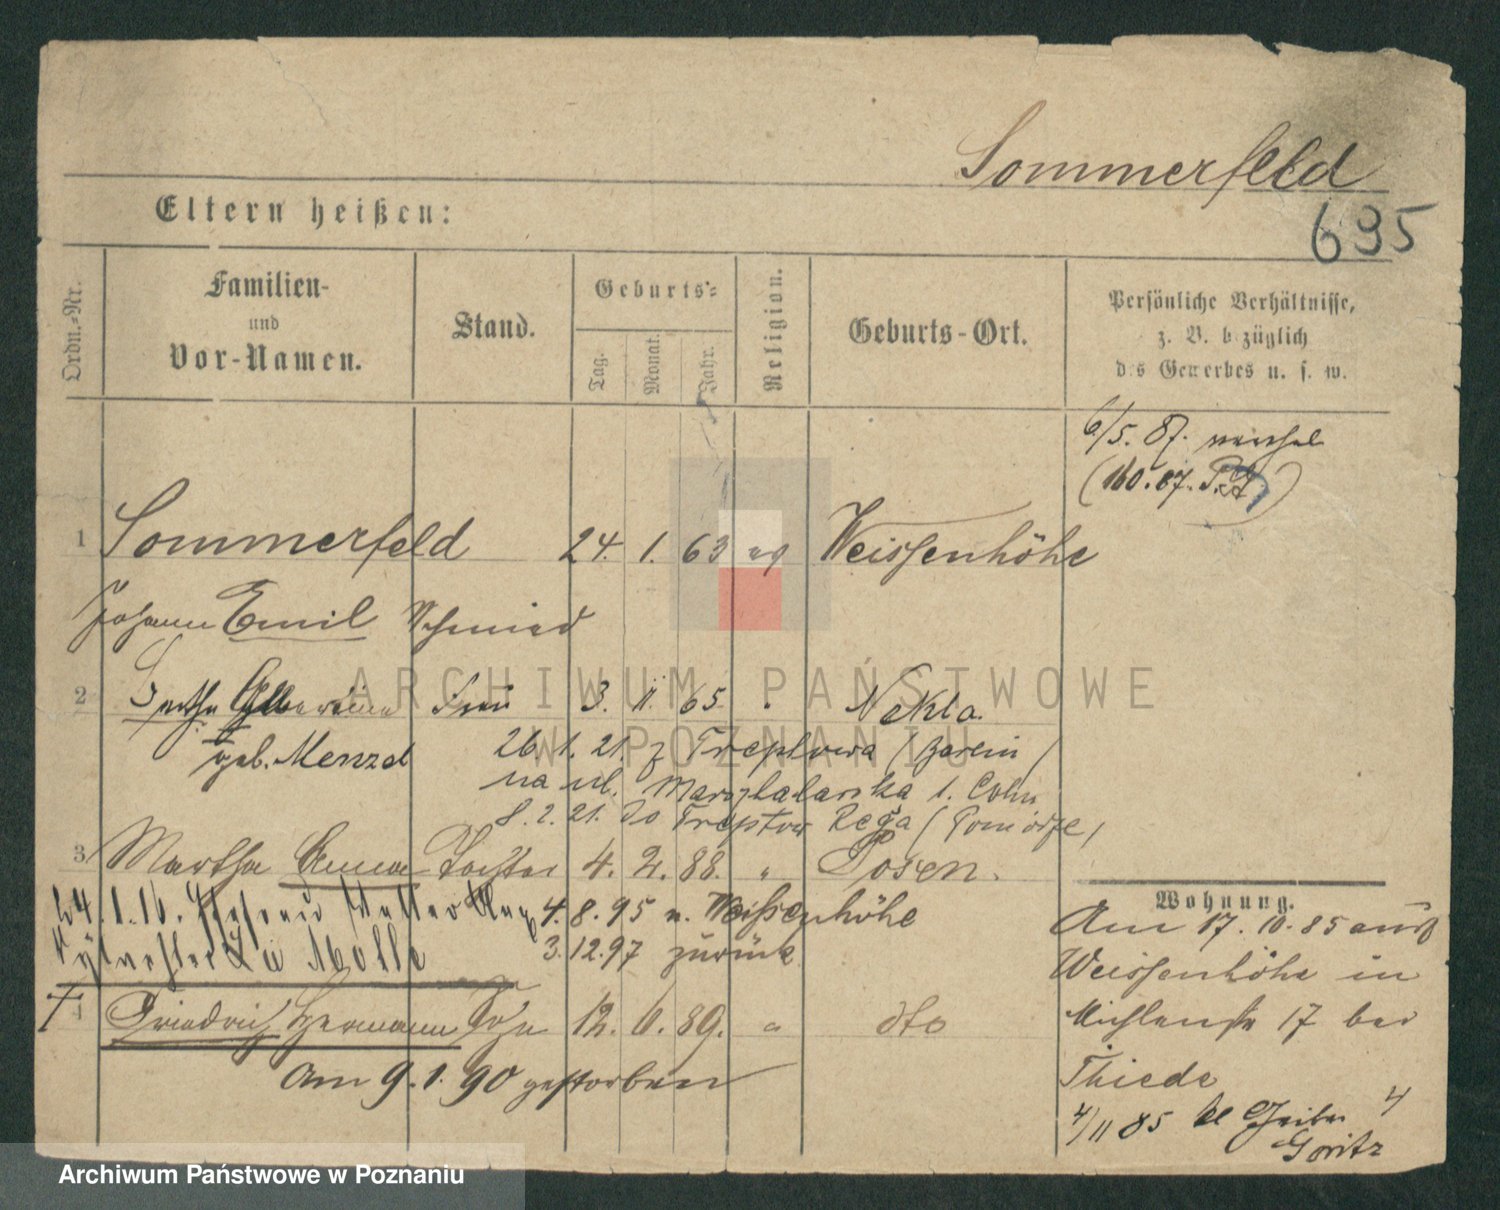 Sommerfeld
695
Eltern heißen:
Ordn.-Nr.
Familien-
und
Vor-Namen.
Stand.
Geburts-
Tag.
Monat.
Jahr.
Religion.
Geburts-Ort.
Persönliche Verhältnisse,
z. B. bezüglich
des Gewerbes u. s. w.
6/5. 87.
1 Sommerfeld 24. 1. 63 ev Weissenhöhe
Johann Emil Schmied
2 Frau 3. 11. 65 " Nekla
geb. Menzel
26. 1. 21. z Treptowa
na ul.
8. 2. 21. do Treptow Rega
3 Martha Anna Tochter 4. 2. 88. " Posen.
24. 1. 16.
4. 8. 95 n. Weissenhöhe
3. 12. 97 zurück
4 Friedrich Hermann Sohn 12. 6. 89. " dto
am 9. 1. 90 gestorben
Wohnung.
Am 17. 10. 85 aus
Weissenhöhe in
Mühlenstr 17 bei
Thiede
4/11 85 4
ARCHIWUM PAŃSTWOWE
W POZNANIU
Archiwum Państwowe w Poznaniu